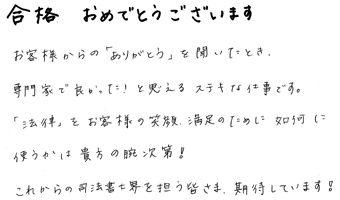 合格 おめでとうございます
お客様からの「ありがとう」を聞いたとき、
専門家で良かった!と思える ステキな仕事です。
「法律」をお客様の笑顔、満足のために 如何に
使うかは貴方の腕次第!
これからの司法書士界を担う皆さま、期待しています!